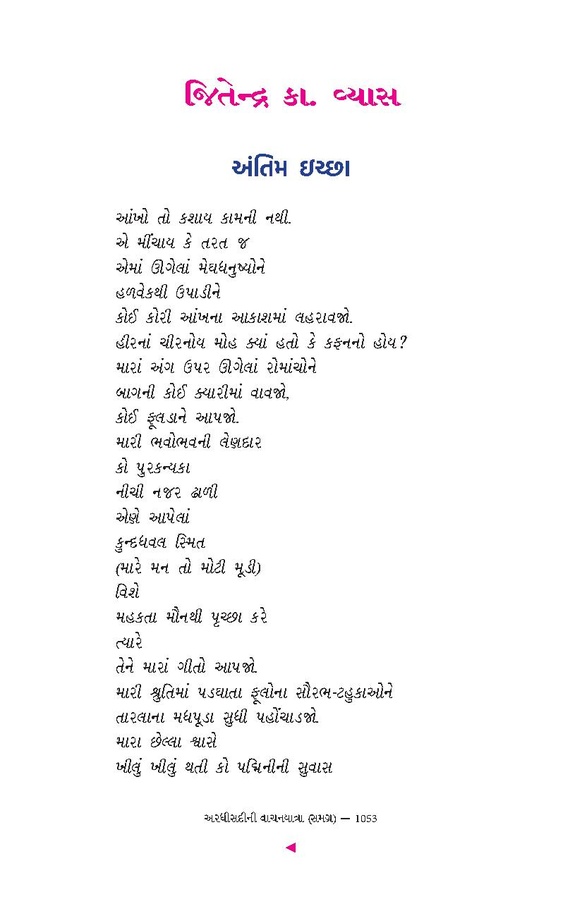 જિતેન્દ્ર કા. વ્યાસ
અંતિમ ઇચ્છા
આંખો તો કશાય કામની નથી.
એ મીંચાય કે તરત જ
એમાં ઊગેલાં મેઘધનુષ્યોને
હળવેકથી ઉપાડીને
કોઈ કોરી આંખના આકાશમાં લહરાવજો.
હીરનાં ચીરનોય મોહ ક્યાં હતો કે કફનનો હોય?
મારાં અંગ ઉપર ઊગેલાં રોમાંચોને
બાગની કોઈ ક્યારીમાં વાવજો,
કોઈ ફૂલડાને આપજો.
મારી ભવોભવની લેણદાર
કો પુરકન્યકા
નીચી નજર ઢાળી
એણે આપેલાં
કુન્દધવલ સ્મિત
(મારે મન તો મોટી મૂડી)
વિશે
મહકતા મૌનથી પૃચ્છા કરે
ત્યારે
તેને મારાં ગીતો આપજો.
મારી શ્રુતિમાં પડઘાતા ફૂલોના સૌરભ-ટહુકાઓને
તારલાના મધપૂડા સુધી પહોંચાડજો.
મારા છેલ્લા શ્વાસે
ખીલું ખીલું થતી કો પદ્મિનીની સુવાસ
અરધીસદીની વાચનયાત્રા (સમગ્ર) — 1053